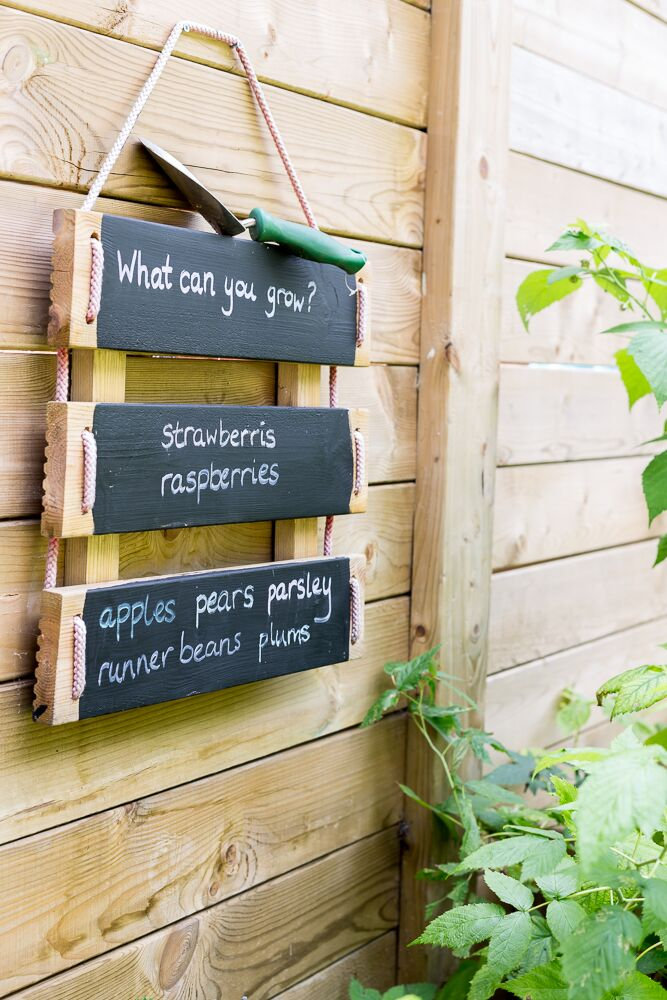 What can you grow?
Strawberris
raspberries
apples pears parsley
runner beans plums